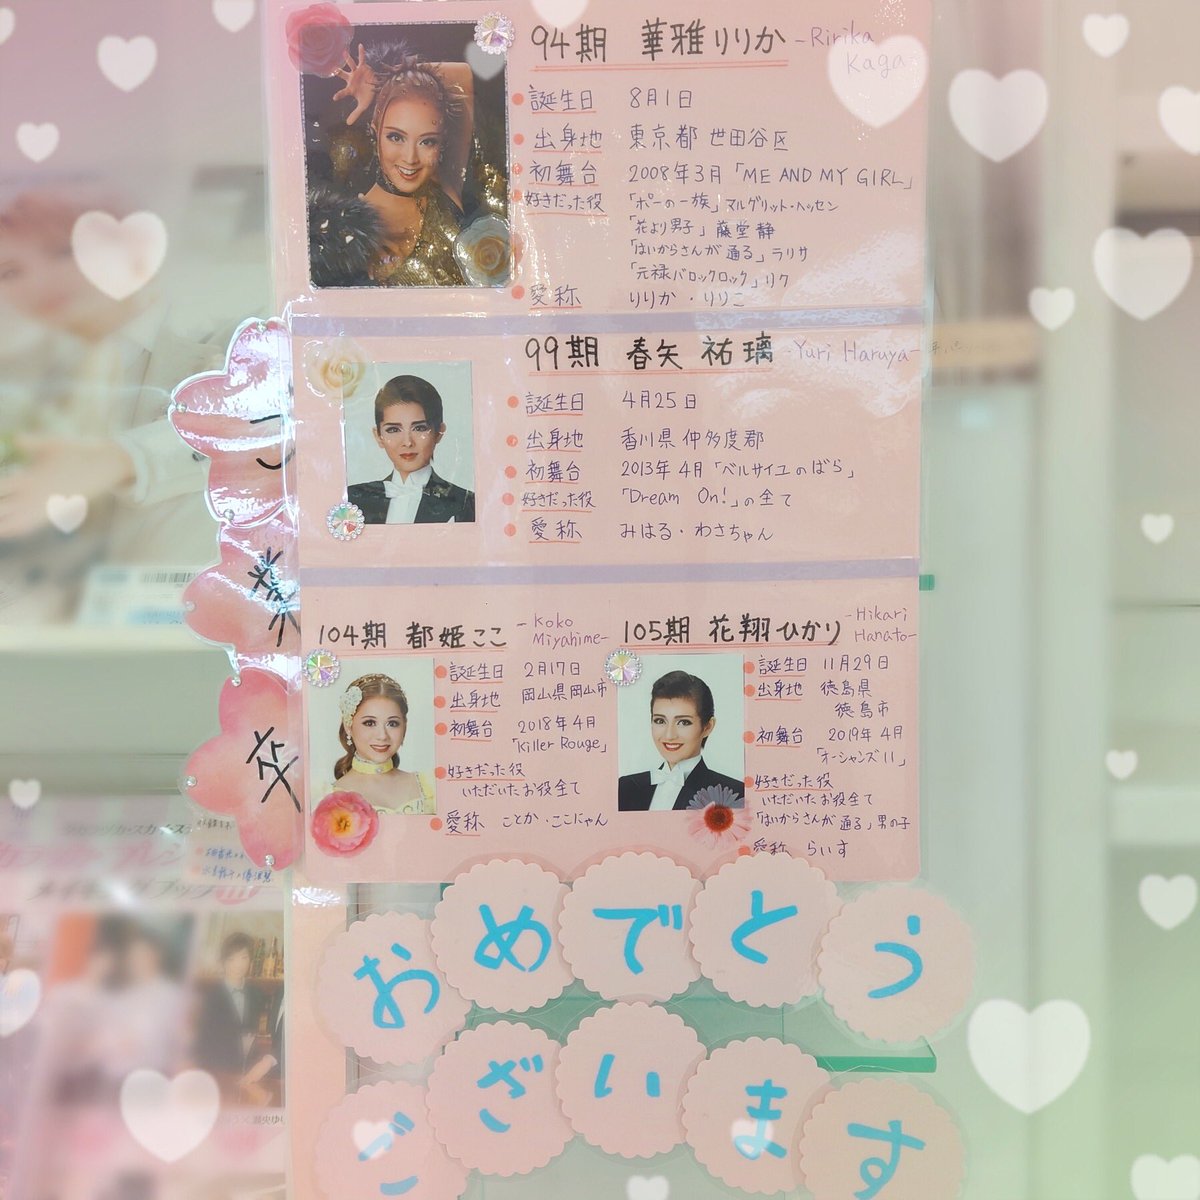 94期 華雅りりか -Ririka Kaga-
誕生日 8月1日
出身地 東京都 世田谷区
初舞台 2008年3月「ME AND MY GIRL」
好きだった役 「ポーの一族」マルグリット・ヘッセン
「花より男子」藤堂静
「はいからさんが通る」ラリサ
「元禄バロックロック」リク
愛称 りりか・りりこ
99期 春矢祐璃 -Yuri Haruya-
誕生日 4月25日
出身地 香川県仲多度郡
初舞台 2013年4月「ベルサイユのばら」
好きだった役 「Dream On!」の全て
愛称 みはる・わさちゃん
104期 都姫ここ -Koko Miyahime-
誕生日 2月17日
出身地 岡山県岡山市
初舞台 2018年4月
「Killer Rouge」
好きだった役
いただいたお役全て
愛称 ことか・ここにゃん
105期 花翔ひかり -Hikari Hanato-
誕生日 11月29日
出身地 徳島県
徳島市
初舞台 2019年4月
「オーシャンズ11」
好きだった役
いただいたお役全て
「はいからさんが通る」男の子
愛称 らいす
卒業
おめでとう
ございます
メイキングブック